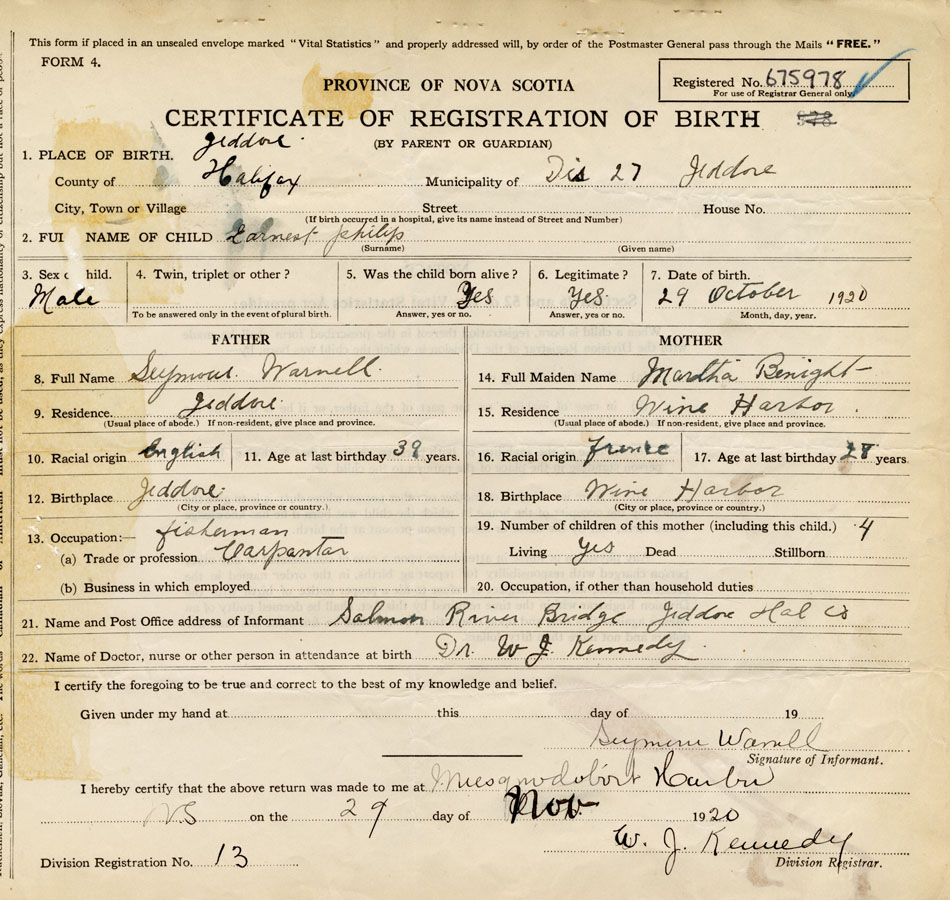 This form if placed in an unsealed envelope marked "Vital Statistics" and properly addressed will, by order of the Postmaster General pass through the Mails "FREE."
FORM 4.
PROVINCE OF NOVA SCOTIA
Registered No. 675978
For use of Registrar General only
CERTIFICATE OF REGISTRATION OF BIRTH
(BY PARENT OR GUARDIAN)
1. PLACE OF BIRTH. Jeddore
County of Halifax Municipality of Dis 27 Jeddore
City, Town or Village Street House No.
(If birth occurred in a hospital, give its name instead of Street and Number)
2. FUL NAME OF CHILD Earnest philip
(Surname) (Given name)
3. Sex c hild. 4. Twin, triplet or other? 5. Was the child born alive? 6. Legitimate? 7. Date of birth.
Male Yes Yes 29 October 1920
To be answered only in the event of plural birth. Answer, yes or no. Answer, yes or no. Month, day, year.
FATHER MOTHER
8. Full Name Seymour Warnell 14. Full Maiden Name Martha Benight
9. Residence. Jeddore 15. Residence Wine Harbor.
(Usual place of abode.) If non-resident, give place and province. (Usual place of abode.) If non-resident, give place and province.
10. Racial origin English 11. Age at last birthday years. 16. Racial origin 17. Age at last birthday years.
12. Birthplace Jeddore 18. Birthplace Wine Harbor
(City or place, province or country.) (City or place, province or country.)
13. Occupation:— fisherman 19. Number of children of this mother (including this child.) 4
(a) Trade or profession Carpantar Living yes Dead Stillborn
(b) Business in which employed 20. Occupation, if other than household duties
21. Name and Post Office address of Informant Salmon River Bridge Jeddore Hal Co
22. Name of Doctor, nurse or other person in attendance at birth Dr. W J. Kennedy
I certify the foregoing to be true and correct to the best of my knowledge and belief.
Given under my hand at this day of 19
Seymour Warnell
Signature of Informant.
I hereby certify that the above return was made to me at Musquodoboit Harbor
NS on the 29 day of Nov. 1920
W. J. Kennedy
Division Registration No. 13 Division Registrar.